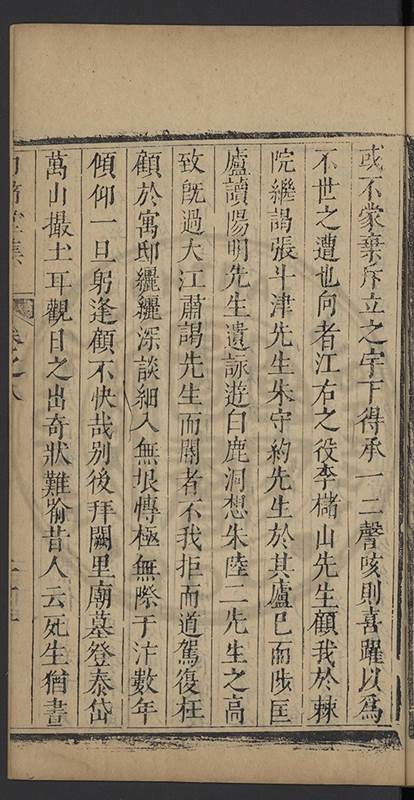 或不蒙棄斥立之宇下得承一二謦咳則喜躍以爲
不世之遭也向者江右之役李櫧山先生顧我於棘
院繼謁張斗津先生朱守約先生於其廬已而陟匡
廬讀陽明先生遺詠遊白鹿洞想朱陸二先生之高
致旣過大江肅謁先生而閽者不我拒而道駕復枉
顧於寓邸纚纚深談細入無垠慱極無際于汴數年
傾仰一旦躬逢顧不快哉別後拜闕里廟墓登泰岱
萬山撮土耳觀日之出奇狀難喻昔人云死生猶晝
堂集 卷之八